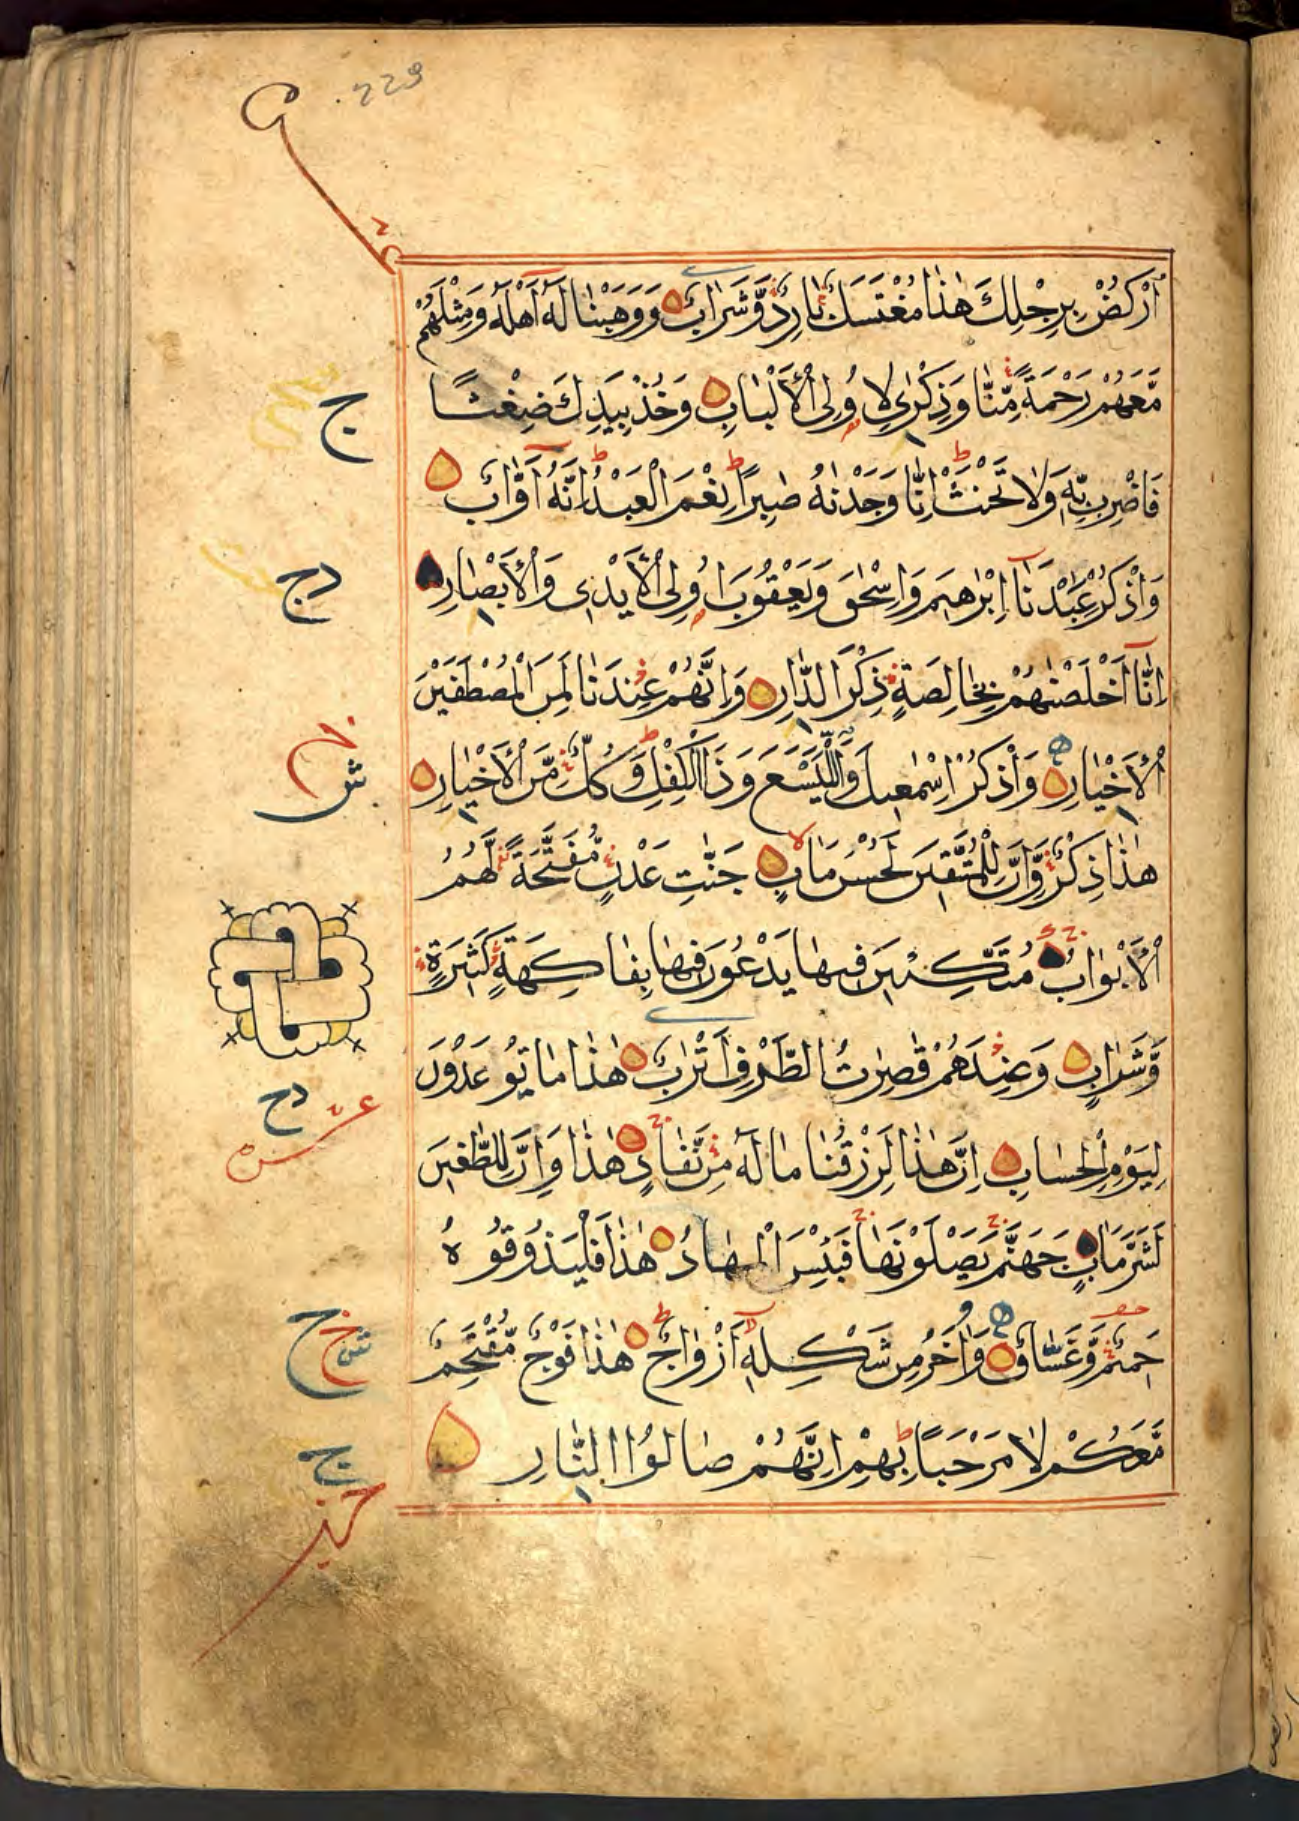 229
عشر
اُرْكُضْ بِرِجْلِكَ هٰذَا مُغْتَسَلٌ بَارِدٌ وَّشَرَابٌ وَوَهَبْنَا لَهٗ اَهْلَهٗ وَمِثْلَهُمْ
مَّعَهُمْ رَحْمَةً مِّنَّا وَذِكْرٰى لِاُولِى الْاَلْبَابِ وَخُذْ بِيَدِكَ ضِغْثًا
ج
فَاضْرِبْ بِّهٖ وَلَا تَحْنَثْ اِنَّا وَجَدْنٰهُ صَابِرًا نِعْمَ الْعَبْدُ اِنَّهٗ اَوَّابٌ
وَاذْكُرْ عِبٰدَنَا اِبْرٰهِيْمَ وَاِسْحٰقَ وَيَعْقُوْبَ اُولِى الْاَيْدِى وَالْاَبْصَارِ
دج
اِنَّا اَخْلَصْنٰهُمْ بِخَالِصَةٍ ذِكْرَى الدَّارِ وَاِنَّهُمْ عِنْدَنَا لَمِنَ الْمُصْطَفَيْنَ
الْاَخْيَارِ وَاذْكُرْ اِسْمٰعِيْلَ وَالْيَسَعَ وَذَا الْكِفْلِ وَكُلٌّ مِّنَ الْاَخْيَارِ
ش
هٰذَا ذِكْرٌ وَّاِنَّ لِلْمُتَّقِيْنَ لَحُسْنَ مَاٰبٍ جَنّٰتِ عَدْنٍ مُّفَتَّحَةً لَّهُمُ
الْاَبْوَابُ مُتَّكِـئِيْنَ فِيْهَا يَدْعُوْنَ فِيْهَا بِفَاكِهَةٍ كَثِيْرَةٍ
وَّشَرَابٍ وَعِنْدَهُمْ قٰصِرٰتُ الطَّرْفِ اَتْرَابٌ هٰذَا مَا تُوْعَدُوْنَ
دح
عشر
لِيَوْمِ الْحِسَابِ اِنَّ هٰذَا لَرِزْقُنَا مَا لَهٗ مِنْ نَّفَادٍ هٰذَا وَاِنَّ لِلطّٰغِيْنَ
لَشَرَّ مَاٰبٍ جَهَنَّمَ يَصْلَوْنَهَا فَبِئْسَ الْمِهَادُ هٰذَا فَلْيَذُوْقُوْهُ
حَمِيْمٌ وَّغَسَّاقٌ وَاٰخَرُ مِنْ شَكْلِهٖ اَزْوَاجٌ هٰذَا فَوْجٌ مُّقْتَحِمٌ
مَّعَكُمْ لَا مَرْحَبًا بِهِمْ اِنَّهُمْ صَالُوا النَّارِ
ج